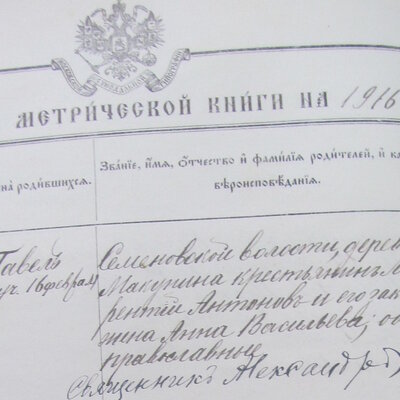 МЕТРИ́ЧЕСКОЙ КНИ́ГИ НА 1916
НА́ РОДИ́ВШИХСЯ.
ЗВА́НІЕ, И́МЯ, О́ТЧЕСТВО И ФАМИ́ЛІЯ РОДИ́ТЕЛЕЙ, И КА
ВѢРОИСПОВѢ́ДАНІЯ.
Павелъ
уч. 16 феврал
Семеновской волости, дерев
Макупина крестьянинъ М
рентій Антоновъ и его зак
жена Анна Васильева; о
православные
Священникъ Александръ